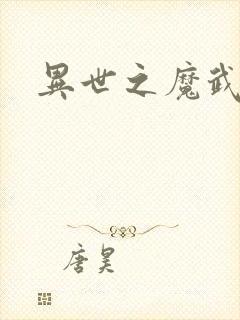 異世之魔武
唐昊